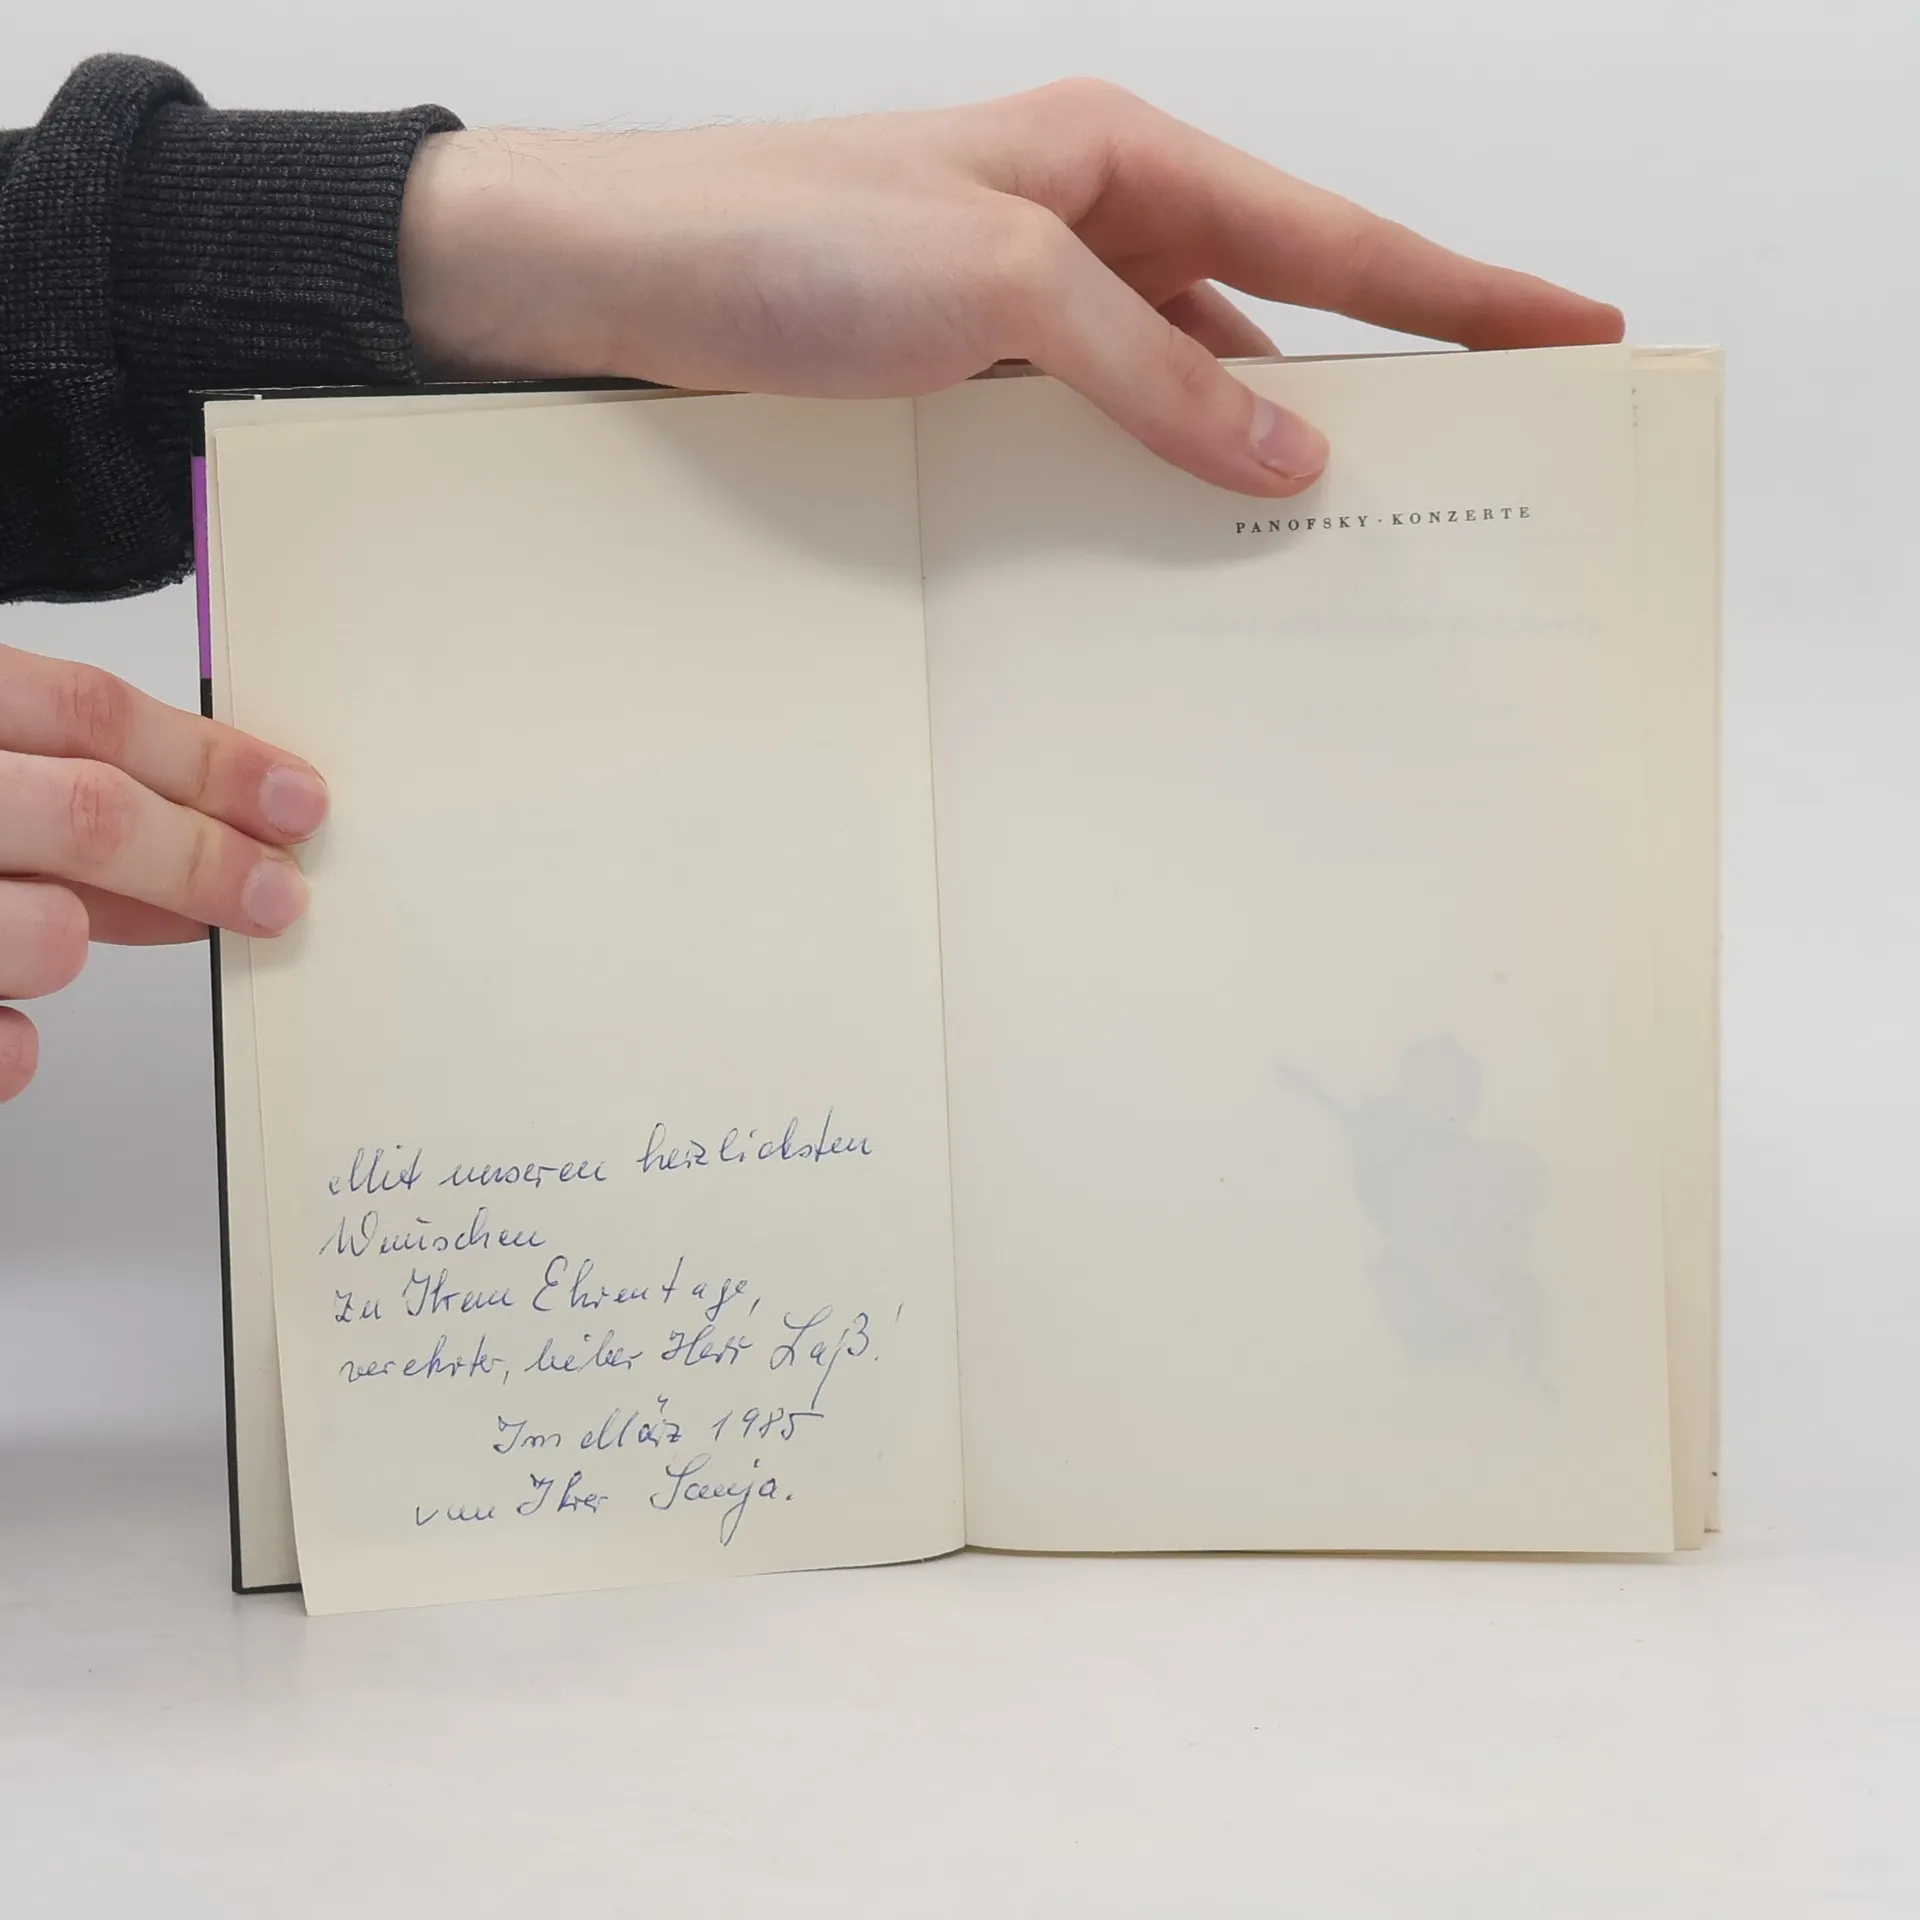 Mit unseren herzlichsten
Wünschen
zu Ihrem Ehrentage,
verehrter, lieber Herr Laß!
Im März 1985
von Ihrer Sonja.
PANOFSKY · KONZERTE